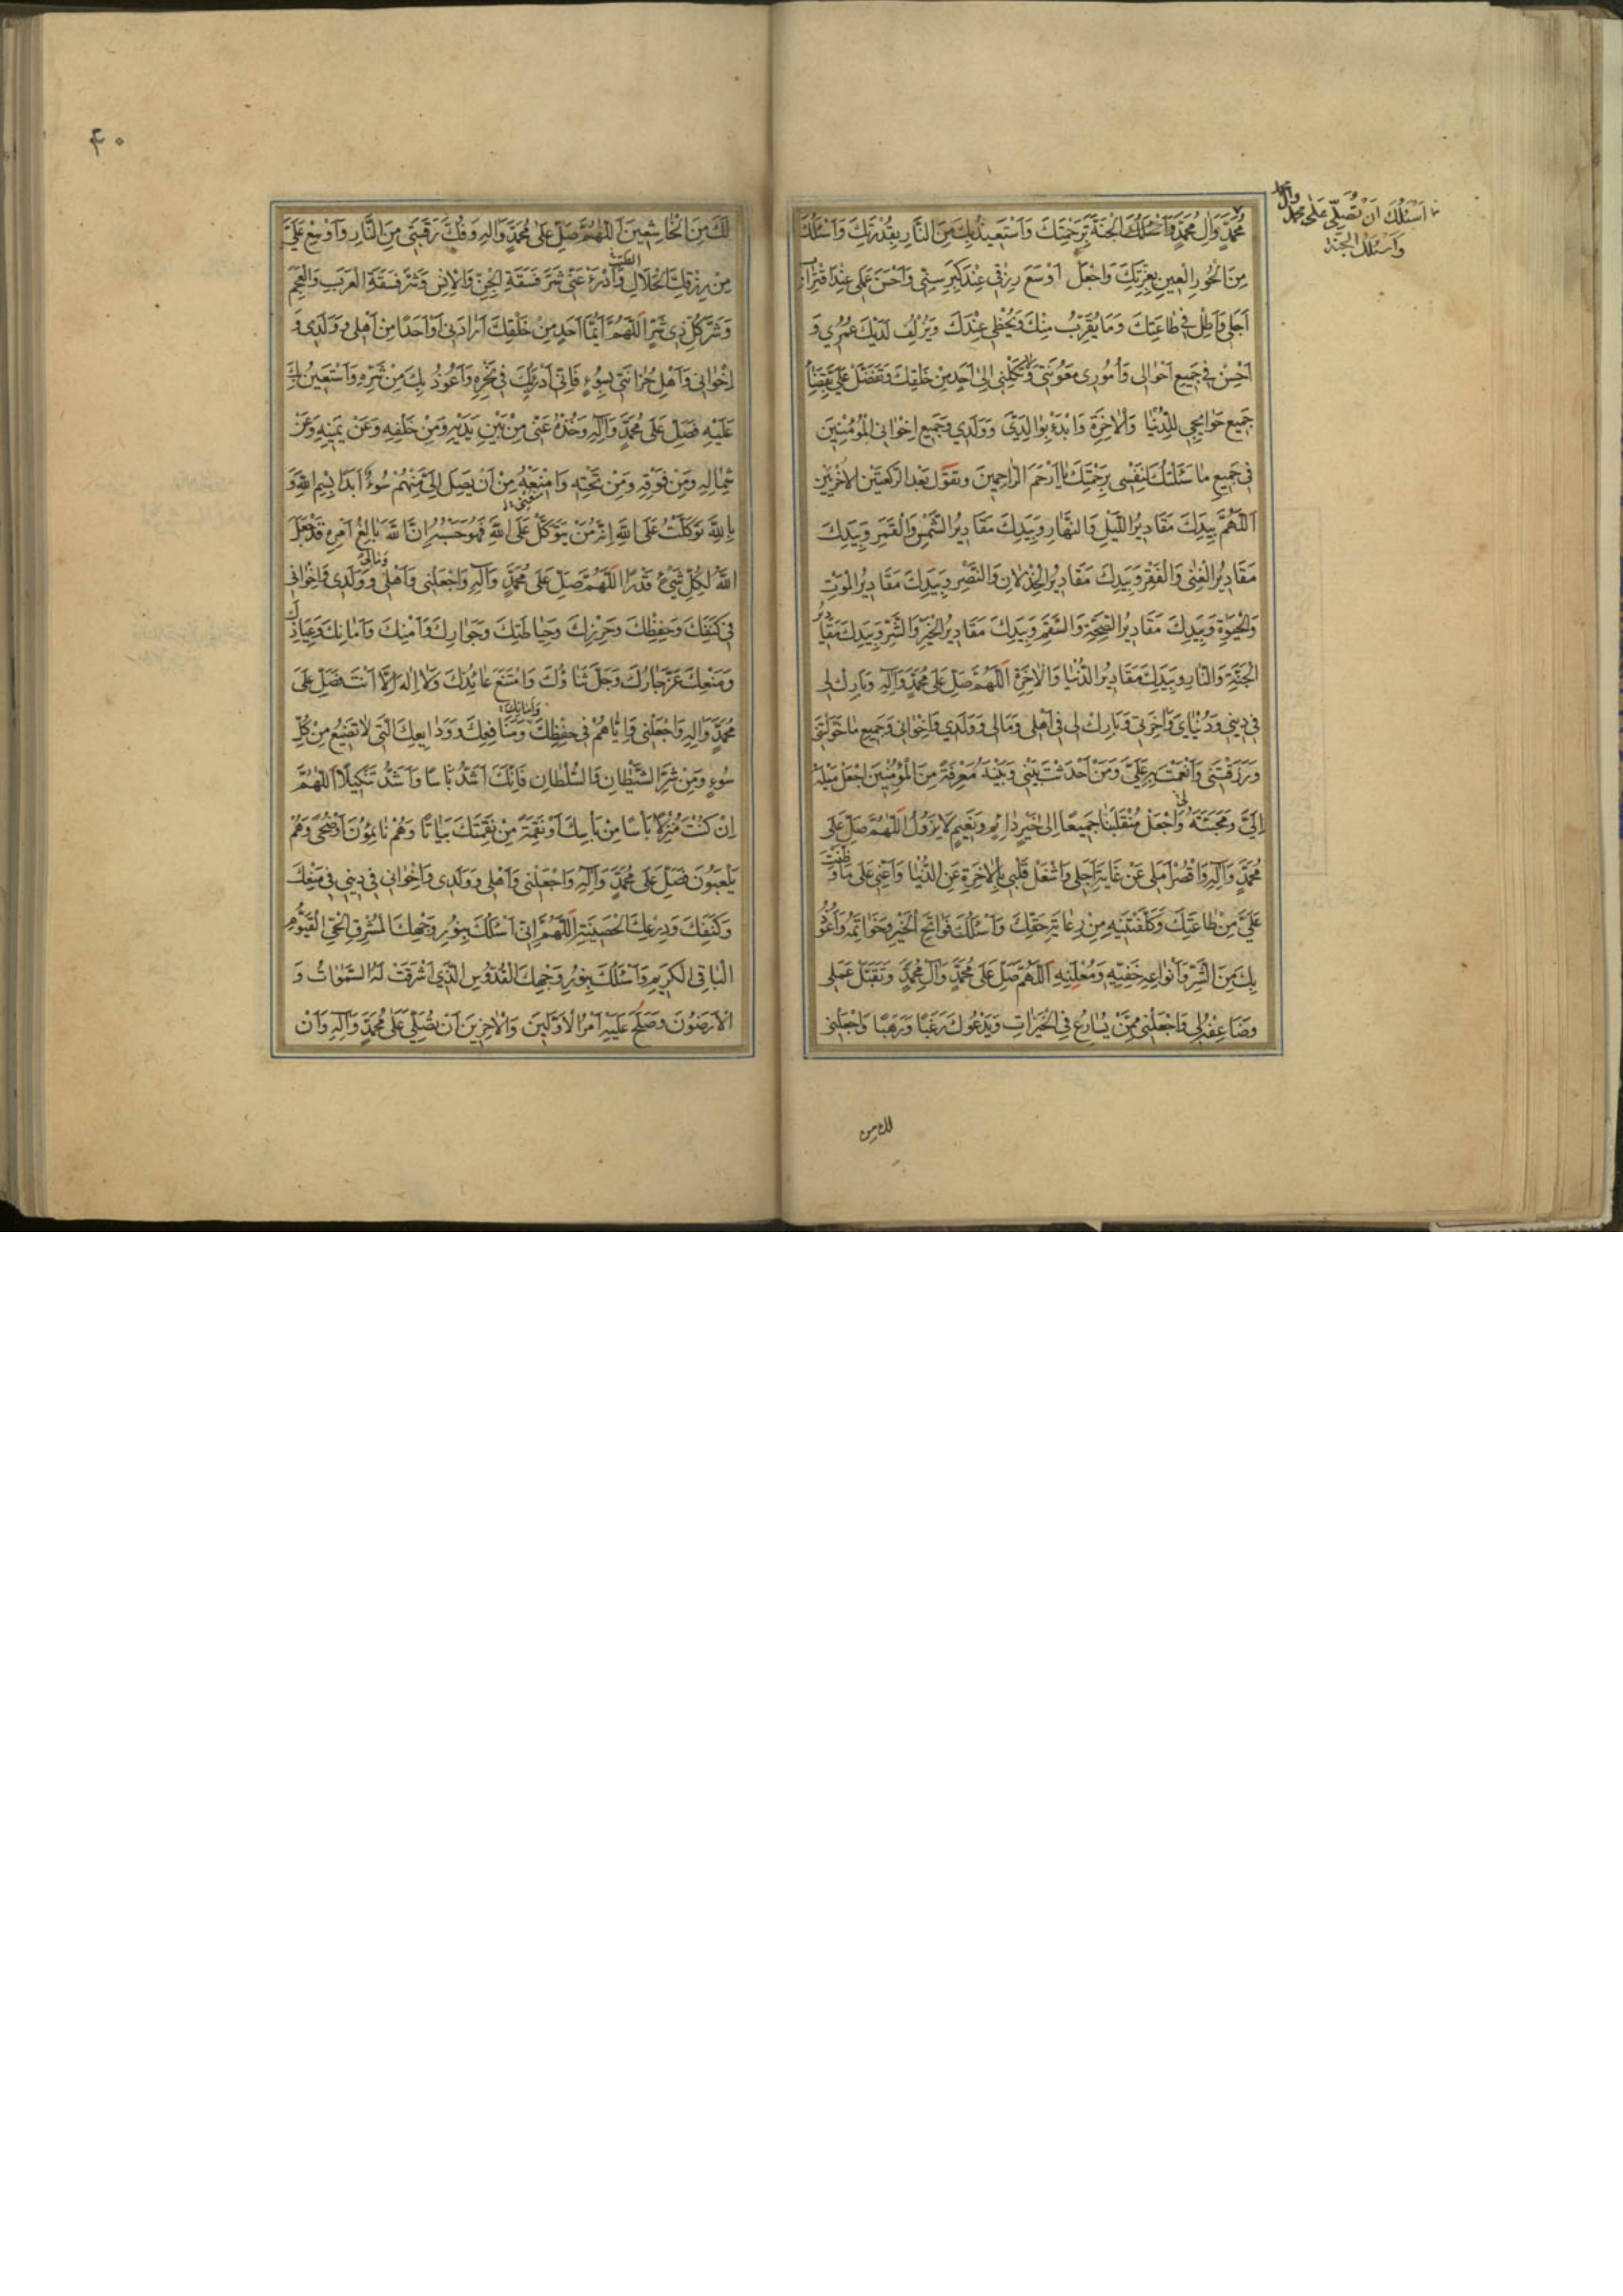 مُحَمَّدٍ وَآلِ مُحَمَّدٍ وَاَسْئَلُكَ الْجَنَّةَ بِرَحْمَتِكَ وَاَسْتَعِيذُ بِكَ مِنَ النَّارِ بِقُدْرَتِكَ وَاَسْئَلُكَ
مِنَ الْحُورِ الْعِينِ بِعِزَّتِكَ وَاجْعَلْ اَوْسَعَ رِزْقِي عِنْدَ كِبَرِ سِنِّي وَاَحْسَنَ عَمَلِي عِنْدَ اقْتِرَابِ
اَجَلِي وَاَطِلْ فِي طَاعَتِكَ وَمَا يُقَرِّبُ مِنْكَ وَيُحْظِي عِنْدَكَ وَيُزْلِفُ لَدَيْكَ عُمُرِي وَ
اَحْسِنْ فِي جَمِيعِ اَحْوَالِي وَاُمُورِي مَعُونَتِي وَلَا تَكِلْنِي اِلَى اَحَدٍ مِنْ خَلْقِكَ وَتَفَضَّلْ عَلَيَّ بِقَضَاءِ
جَمِيعِ حَوَائِجِي لِلدُّنْيَا وَالْاٰخِرَةِ وَابْدَءْ بِوَالِدَيَّ وَوَلَدِي وَجَمِيعِ اِخْوَانِي الْمُؤْمِنِينَ
فِي جَمِيعِ مَا سَئَلْتُكَ لِنَفْسِي بِرَحْمَتِكَ يَا اَرْحَمَ الرَّاحِمِينَ وتقول بَعْدَ الرَّكْعَتَيْنِ الْاُخْرَيَيْنِ
اَللّٰهُمَّ بِيَدِكَ مَقَادِيرُ اللَّيْلِ وَالنَّهَارِ وَبِيَدِكَ مَقَادِيرُ الشَّمْسِ وَالْقَمَرِ وَبِيَدِكَ
مَقَادِيرُ الْغِنٰى وَالْفَقْرِ وَبِيَدِكَ مَقَادِيرُ الْخِذْلَانِ وَالنَّصْرِ وَبِيَدِكَ مَقَادِيرُ الْمَوْتِ
وَالْحَيٰوةِ وَبِيَدِكَ مَقَادِيرُ الصِّحَّةِ وَالسَّقَمِ وَبِيَدِكَ مَقَادِيرُ الْخَيْرِ وَالشَّرِّ وَبِيَدِكَ مَقَادِيرُ
الْجَنَّةِ وَالنَّارِ وَبِيَدِكَ مَقَادِيرُ الدُّنْيَا وَالْاٰخِرَةِ اَللّٰهُمَّ صَلِّ عَلٰى مُحَمَّدٍ وَآلِهِ وَبَارِكْ لِي
فِي دِينِي وَدُنْيَايَ وَاٰخِرَتِي وَبَارِكْ لِي فِي اَهْلِي وَمَالِي وَوَلَدِي وَاِخْوَانِي وَجَمِيعِ مَا خَوَّلْتَنِي
وَرَزَقْتَنِي وَاَنْعَمْتَ بِهِ عَلَيَّ وَمَنْ اَحْدَثْتَ بَيْنِي وَبَيْنَهُ مَعْرِفَةً مِنَ الْمُؤْمِنِينَ اجْعَلْ مَيْلَهُ
اِلَيَّ وَمَحَبَّتَهُ لِي وَاجْعَلْ مُنْقَلَبَنَا جَمِيعًا اِلٰى خَيْرٍ دَائِمٍ وَنَعِيمٍ لَا يَزُولُ اَللّٰهُمَّ صَلِّ عَلٰى
مُحَمَّدٍ وَآلِهِ وَاقْصُرْ اَمَلِي عَنْ غَايَةِ اَجَلِي وَاشْغَلْ قَلْبِي بِالْاٰخِرَةِ عَنِ الدُّنْيَا وَاَعِنِّي عَلٰى مَا وَظَّفْتَ
عَلَيَّ مِنْ طَاعَتِكَ وَكَلَّفْتَنِيهِ مِنْ رِعَايَةِ حَقِّكَ وَاَسْئَلُكَ فَوَاتِحَ الْخَيْرِ وَخَوَاتِمَهُ وَاَعُوذُ
بِكَ مِنَ الشَّرِّ وَاَنْوَاعِهِ خَفِيِّهِ وَمُعْلَنِهِ اَللّٰهُمَّ صَلِّ عَلٰى مُحَمَّدٍ وَآلِ مُحَمَّدٍ وَتَقَبَّلْ عَمَلِي
وَضَاعِفْهُ لِي وَاجْعَلْنِي مِمَّنْ يُسَارِعُ فِي الْخَيْرَاتِ وَيَدْعُوكَ رَغَبًا وَرَهَبًا وَاجْعَلْنِي
اَسْئَلُكَ اَنْ تُصَلِّيَ عَلٰى مُحَمَّدٍ وَآلِ مُحَمَّد
وَاَسْئَلُكَ الْجَنَّةَ
لك من
۴۰
لَكَ مِنَ الْخَاشِعِينَ اَللّٰهُمَّ صَلِّ عَلٰى مُحَمَّدٍ وَآلِهِ وَفُكَّ رَقَبَتِي مِنَ النَّارِ وَاَوْسِعْ عَلَيَّ
مِنْ رِزْقِكَ الْحَلَالِ الطَّيِّبِ وَادْرَءْ عَنِّي شَرَّ فَسَقَةِ الْجِنِّ وَالْاِنْسِ وَشَرَّ فَسَقَةِ الْعَرَبِ وَالْعَجَمِ
وَشَرَّ كُلِّ ذِي شَرٍّ اَللّٰهُمَّ اَيُّمَا اَحَدٍ مِنْ خَلْقِكَ اَرَادَنِي اَوْ اَحَدًا مِنْ اَهْلِي وَوَلَدِي وَ
اِخْوَانِي وَاَهْلِ حُزَانَتِي بِسُوءٍ فَاِنِّي اَدْرَءُ بِكَ فِي نَحْرِهِ وَاَعُوذُ بِكَ مِنْ شَرِّهِ وَاَسْتَعِينُ بِكَ
عَلَيْهِ فَصَلِّ عَلٰى مُحَمَّدٍ وَآلِهِ وَخُذْهُ عَنِّي مِنْ بَيْنِ يَدَيْهِ وَمِنْ خَلْفِهِ وَعَنْ يَمِينِهِ وَعَنْ
شِمَالِهِ وَمِنْ فَوْقِهِ وَمِنْ تَحْتِهِ وَامْنَعْهُ مِنْ اَنْ يَصِلَ اِلَيَّ مِنْهُمْ سُوءٌ اَبَدًا بِسْمِ اللّٰهِ وَ
بِاللّٰهِ تَوَكَّلْتُ عَلَى اللّٰهِ اِنَّهُ مَنْ يَتَوَكَّلْ عَلَى اللّٰهِ فَهُوَ حَسْبُهُ اِنَّ اللّٰهَ بَالِغُ اَمْرِهِ قَدْ جَعَلَ
اللّٰهُ لِكُلِّ شَيْءٍ قَدْرًا اَللّٰهُمَّ صَلِّ عَلٰى مُحَمَّدٍ وَآلِهِ وَاجْعَلْنِي وَاَهْلِي وَمَالِي وَوَلَدِي وَاِخْوَانِي
فِي كَنَفِكَ وَحِفْظِكَ وَحِرْزِكَ وَحِيَاطَتِكَ وَجِوَارِكَ وَاَمْنِكَ وَاَمَانِكَ وَعِيَاذِكَ
وَمَنْعِكَ عَزَّ جَارُكَ وَجَلَّ ثَنَاؤُكَ وَامْتَنَعَ عَائِذُكَ وَلَا اِلٰهَ اِلَّا اَنْتَ فَصَلِّ عَلٰى
مُحَمَّدٍ وَآلِهِ وَاجْعَلْنِي وَاِيَّاهُمْ فِي حِفْظِكَ وَاَمَانِكَ وَمَنَافِعِكَ وَوَدَايِعِكَ الَّتِي لَا تَضِيعُ مِنْ كُلِّ
سُوءٍ وَمِنْ شَرِّ الشَّيْطَانِ وَالسُّلْطَانِ فَاِنَّكَ اَشَدُّ بَاْسًا وَاَشَدُّ تَنْكِيلًا اَللّٰهُمَّ
اِنْ كُنْتَ مُنْزِلًا بَاْسًا مِنْ بَاْسِكَ اَوْ نِقْمَةً مِنْ نِقْمَتِكَ بَيَاتًا وَهُمْ نَائِمُونَ اَوْ ضُحًى وَهُمْ
يَلْعَبُونَ فَصَلِّ عَلٰى مُحَمَّدٍ وَآلِهِ وَاجْعَلْنِي وَاَهْلِي وَوَلَدِي وَاِخْوَانِي فِي دِينِي فِي مَنْعِكَ
وَكَنَفِكَ وَدِرْعِكَ الْحَصِينَةِ اَللّٰهُمَّ اِنِّي اَسْئَلُكَ بِنُورِ وَجْهِكَ الْمُشْرِقِ الْحَيِّ الْقَيُّومِ
الْبَاقِي الْكَرِيمِ وَاَسْئَلُكَ بِنُورِ وَجْهِكَ الْقُدُّوسِ الَّذِي اَشْرَقَتْ لَهُ السَّمٰوَاتُ وَ
الْاَرَضُونَ وَصَلُحَ عَلَيْهِ اَمْرُ الْاَوَّلِينَ وَالْاٰخِرِينَ اَنْ تُصَلِّيَ عَلٰى مُحَمَّدٍ وَآلِهِ وَاَنْ